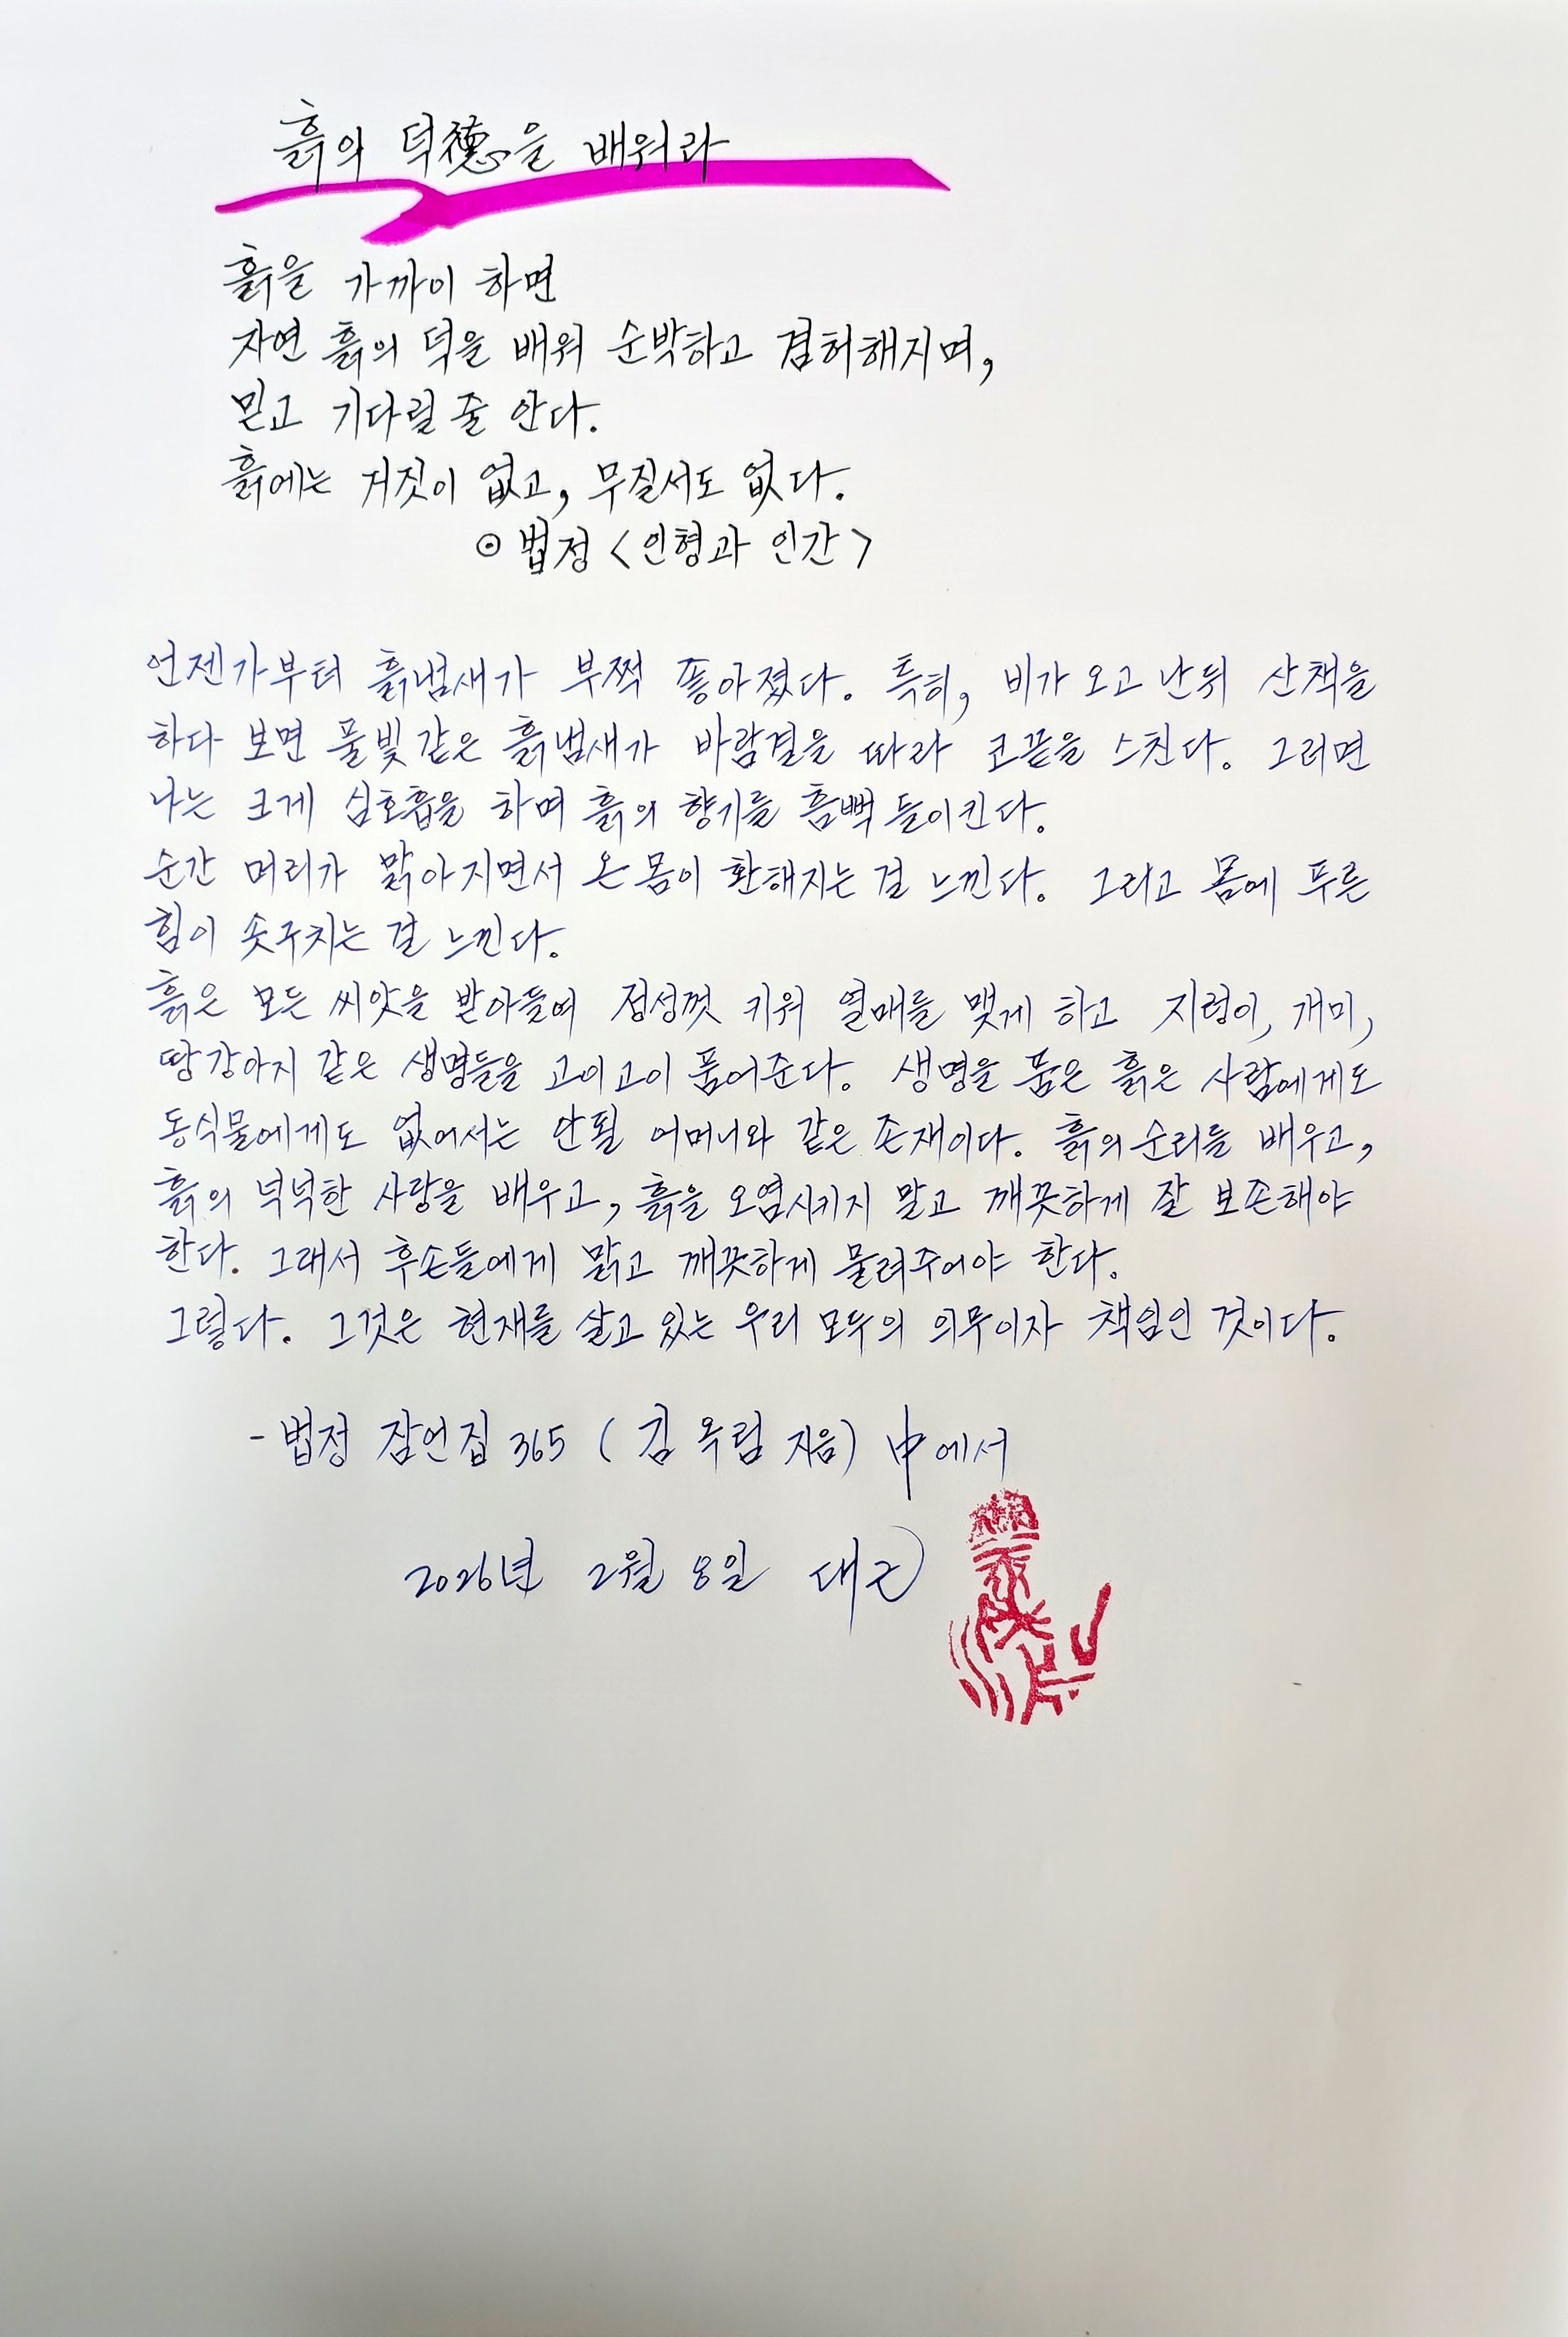 흙의 덕德을 배워라
흙을 가까이 하면
자연 흙의 덕을 배워 순박하고 겸허해지며,
믿고 기다릴 줄 안다.
흙에는 거짓이 없고, 무질서도 없다.
⊙ 법정 <인형과 인간>
언젠가부터 흙냄새가 부쩍 좋아졌다. 특히, 비가 오고 난 뒤 산책을
하다 보면 풀빛 같은 흙냄새가 바람결을 따라 코끝을 스친다. 그러면
나는 크게 심호흡을 하며 흙의 향기를 흠뻑 들이킨다.
순간 머리가 맑아지면서 온 몸이 환해지는 걸 느낀다. 그리고 몸에 푸른
힘이 솟구치는 걸 느낀다.
흙은 모든 씨앗을 받아들여 정성껏 키워 열매를 맺게 하고 지렁이, 개미,
땅강아지 같은 생명들을 고이고이 품어준다. 생명을 품은 흙은 사람에게도
동식물에게도 없어서는 안될 어머니와 같은 존재이다. 흙의 순리를 배우고,
흙의 넉넉한 사랑을 배우고, 흙을 오염시키지 말고 깨끗하게 잘 보존해야
한다. 그래서 후손들에게 맑고 깨끗하게 물려주어야 한다.
그렇다. 그것은 현재를 살고 있는 우리 모두의 의무이자 책임인 것이다.
- 법정 잠언집 365 ( 김 옥림 지음) 中에서
2026년 2월 8일 대근